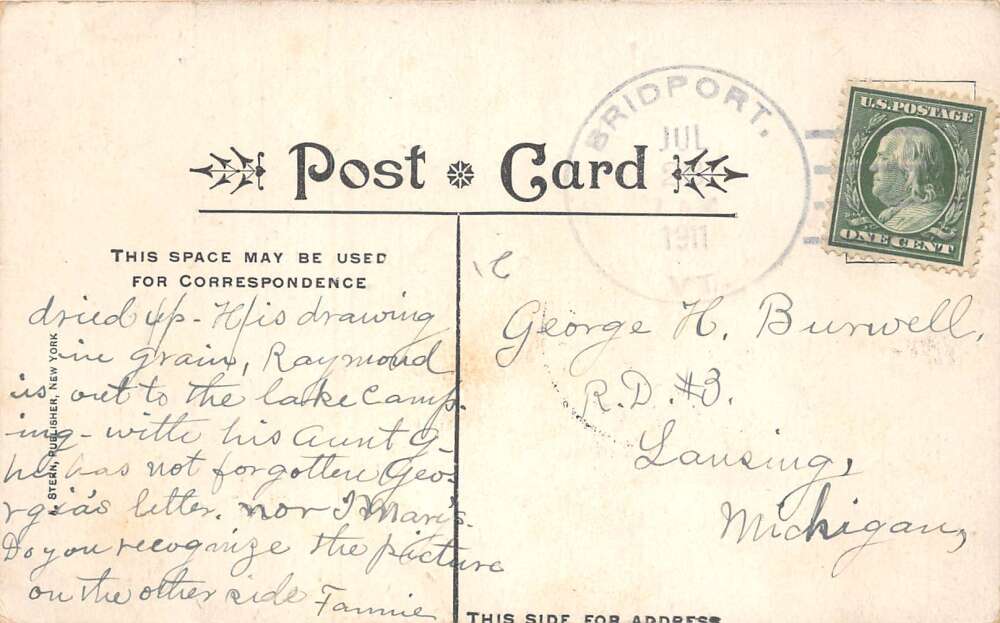 BRIDPORT,
JUL
1911
VT.
U.S. POSTAGE
ONE CENT
Post Card
THIS SPACE MAY BE USED
FOR CORRESPONDENCE
dried up - H is drawing
in grain, Raymond
is out to the lake Camp-
ing - with his Aunt G-
he has not forgotten Geo-
rgia's letter. nor I Marg's.
Do you recognize the picture
on the other side Fannie
STERN, PUBLISHER, NEW YORK
George H. Burwell,
R.D. #3.
Lansing,
Michigan,
THIS SIDE FOR ADDRESS